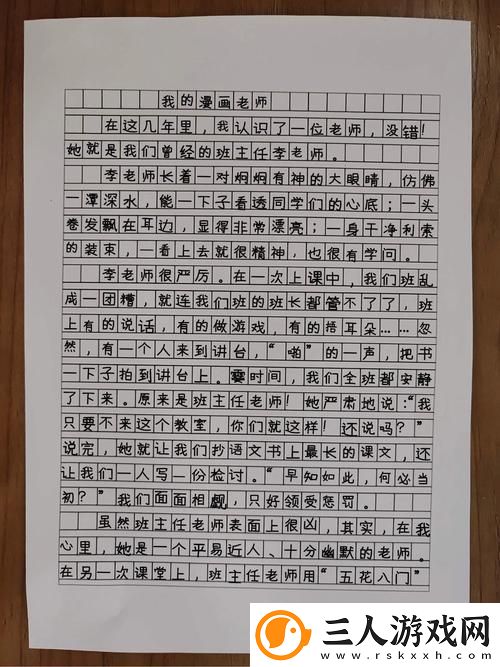 我的漫画老师
在这几年里，我认识了一位老师，没错！
她就是我们曾经的班主任李老师。
李老师长着一对炯炯有神的大眼睛，仿佛
一潭深水，能一下子看透同学们的心底；一头
卷发飘在耳边，显得非常漂亮；一身干净利索
的装束，一看上去就很精神，也很有学问。
李老师很严厉。在一次上课中，我们班乱
成一团糟，就连我们班的班长都管不了了，班
上有的说话，有的做游戏，有的捂耳朵……忽
然，有一个人来到讲台，“啪”的一声，把书
一下子拍到讲台上。霎时间，我们全班都安静
了下来。原来是班主任老师！她严肃地说：“我
只要不来这个教室，你们就这样！还说吗？”
说完，她就让我们抄语文书上最长的课文，还
让我们一人写一份检讨。“早知如此，何必当
初？”我们面面相觑，只好领受惩罚。
虽然班主任老师表面上很凶，其实，在我
心里，她是一个平易近人、十分幽默的老师。
在另一次课堂上，班主任老师用“五花八门”
三人游戏网
www.rskxxh.com